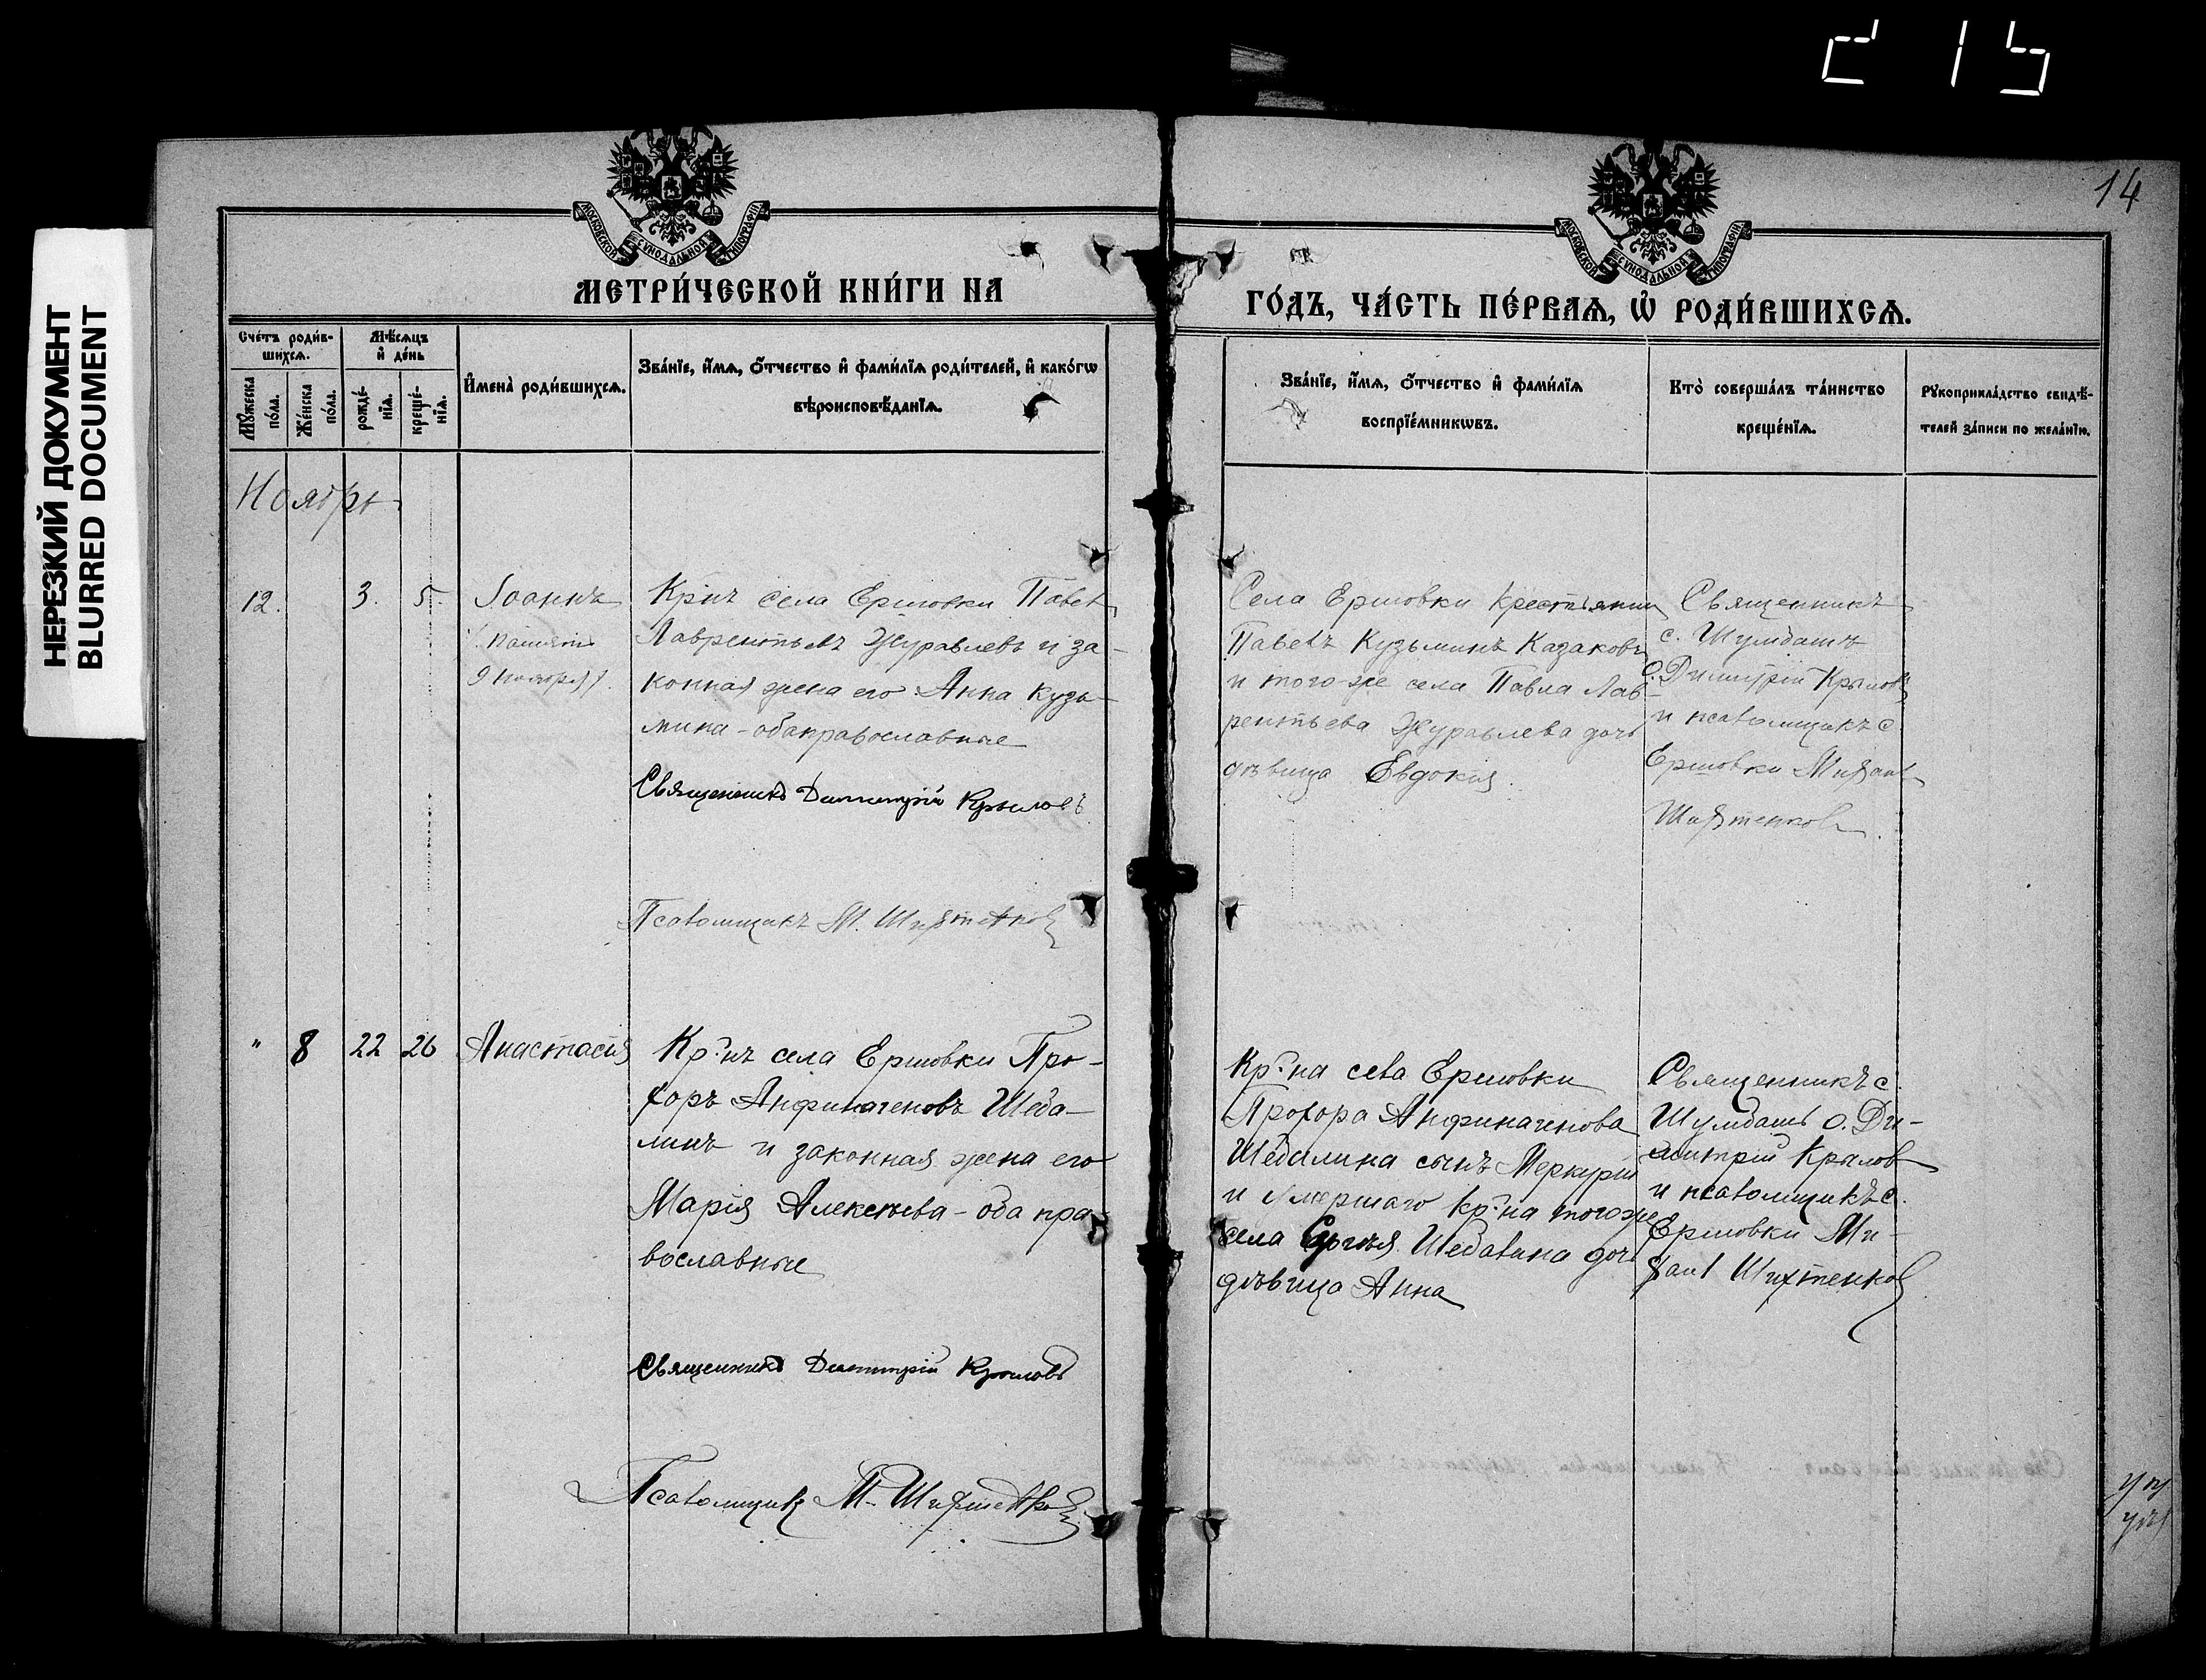 14
НЕРЕЗКИЙ ДОКУМЕНТ
BLURRED DOCUMENT
МОСКОВСКОЙ СѴНОДАЛЬНОЙ ТИПОГРАФІИ
МОСКОВСКОЙ СѴНОДАЛЬНОЙ ТИПОГРАФІИ
МЕТРИ́ЧЕСКОЙ КНИ́ГИ НА
ГО́ДЪ, ЧА́СТЬ ПЕ́РВАѦ, Ѡ҆ РОДИ́ВШИХСѦ.
Сче́тъ роди́в-
шихсѧ.
Мꙋ́жеска
по́ла.
Же́нска
по́ла.
Мѣ́сѧцъ
и҆ де́нь
рожде́-
нїѧ.
креще́-
нїѧ.
И҆мена̀ роди́вшихсѧ.
Зва́нїе, и҆́мѧ, ѻ҆́тчество и҆ фами́лїѧ роди́телей, и҆ како́гѡ
вѣроисповѣ́данїѧ.
Зва́нїе, и҆́мѧ, ѻ҆́тчество и҆ фами́лїѧ
воспрїе́мникѡвъ.
Кто̀ соверша́лъ та́инство
креще́нїѧ.
Рꙋкоприкла́дство свидѣ́-
телей за́писи по жела́нїю.
Ноябрь
12.
3.
5.
Іоаннъ
памяти
9 ноября).
Крнъ села Ершовки Павел
Лаврентьевъ Журавлевъ и за-
конная жена его Анна Кузь-
мина - оба православные
Священникъ Димитрій Крыловъ
Псаломщикъ М. Шихтенков
Села Ершовки крестьянин
Павелъ Кузьминъ Казаковъ
и того-же села Павла Лав-
рентьева Журавлева дочь
дѣвица Евдокия.
Священникъ
с. Шумбашъ
о. Димитрій Крылов
и псаломщикъ с
Ершовки Михаил
Шихтенков.
"
8
22
26
Анастасія
Кр-нъ села Ершовки Про-
хоръ Анфиногеновъ Шеба-
линъ и законная жена его
Марія Алексѣева - оба пра
вославные
Священникъ Димитрій Крыловъ
Псаломщикъ М. Шихтенков
Кр-на села Ершовки
Прохора Анфиногенова
Шебалина сынъ Меркурій
и умершаго кр-на того же
села Сергѣя Шебалина дочь
дѣвица Анна
Священникъ с.
Шумбашъ о. Ди-
митрій Крылов
и псаломщикъ с.
Ершовки Ми-
хаил Шихтенков